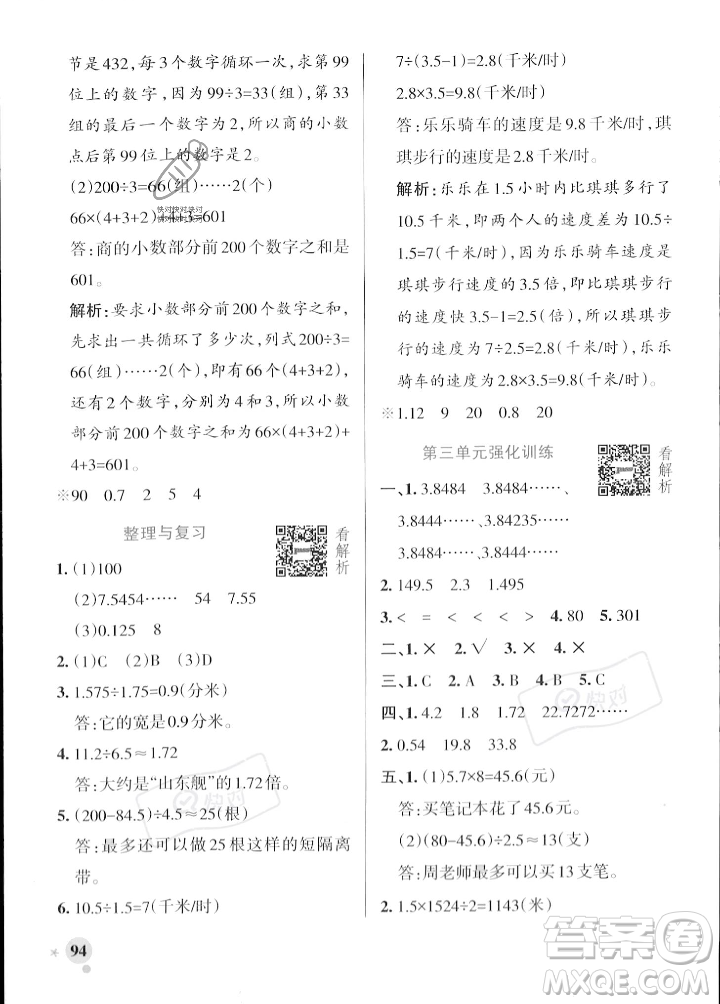 节是432，每3个数字循环一次，求第99
位上的数字，因为99÷3=33(组)，第33
组的最后一个数字为2，所以商的小数
点后第99位上的数字是2。
(2)200÷3=66(组)……2(个)
66×(4+3+2)+4+3=601
答：商的小数部分前200个数字之和是
601。
解析：要求小数部分前200个数字之和，
先求出一共循环了多少次，列式200÷3=
66(组)……2(个)，即有66个循环，还余
2个数字，分别为4和3，所以小数部分
前200个数字之和为66×(4+3+2)+
4+3=601。
※90 0.7 2 5 4
整理与复习
看解析
1. (1)100
(2)7.5454…… 54 7.55
(3)0.125 8
2. (1)C (2)B (3)D
3. 1.575÷1.75=0.9(分米)
答：它的宽是0.9分米。
4. 11.2÷6.5≈1.72
答：大约是“山东舰”的1.72倍。
5. (200-84.5)÷4.5≈25(根)
答：最多还可以做25根这样的短隔离
带。
6. 10.5÷1.5=7(千米/时)
94
7÷(3.5-1)=2.8(千米/时)
2.8×3.5=9.8(千米/时)
答：乐乐骑车的速度是9.8千米/时，琪
琪步行的速度是2.8千米/时。
解析：乐乐在1.5小时内比琪琪多行了
10.5千米，即两个人的速度差为10.5÷
1.5=7(千米/时)，因为乐乐骑车的速度是
琪琪步行的速度的3.5倍，即乐乐比琪琪
步行的速度快3.5-1=2.5(倍)，所以琪琪步
行的速度为7÷2.5=2.8(千米/时)，乐乐
骑车的速度为2.8×3.5=9.8(千米/时)。
※1.12 9 20 0.8 20
第三单元强化训练
看解析
一、1. 3.8484 3.8484……、
3.8444……、3.84235……、
3.8484……、3.8444……
2. 149.5 2.3 1.495
3. < = < < < > 4. 80 5. 301
二、1. × 2. √ 3. × 4. ×
三、1. C 2. A 3. B 4. B 5. C
四、1. 4.2 1.8 1.72 22.7272……
2. 0.54 19.8 33.8
五、1. (1)5.7×8=45.6(元)
答：买笔记本花了45.6元。
(2)(80-45.6)÷2.5≈13(支)
答：周老师最多可以买13支笔。
2. 1.5×1524÷2=1143(米)
快对
快对
答案圈
MXQE.COM